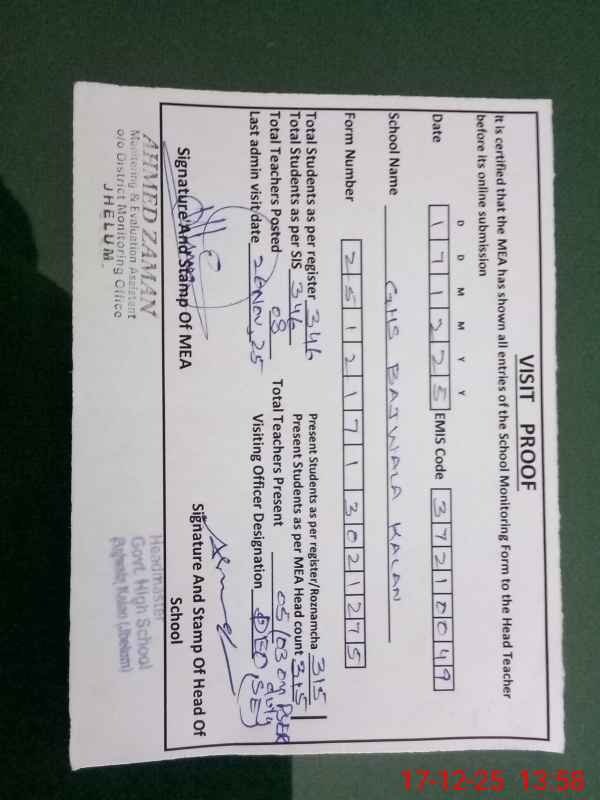 VISIT PROOF
It is certified that the MEA has shown all entries of the School Monitoring Form to the Head Teacher
before its online submission
D D M M Y Y
Date 1 7 1 2 2 5 EMIS Code 3 7 2 1 0 0 4 9
School Name GHS BAJWALA KALAN
Form Number 2 5 1 2 1 7 1 3 0 2 1 2 7 5
Total Students as per register 346 Present Students as per register/Roznamcha 315
Total Students as per SIS 346 Present Students as per MEA Head count 315
Total Teachers Posted 08 Total Teachers Present 05/03 on duty
Last admin visit date 26 Nov, 25 Visiting Officer Designation DEO (SE)
Signature And Stamp Of MEA
Signature And Stamp Of Head Of
School
AHMED ZAMAN
Monitoring & Evaluation Assistant
o/o District Monitoring Office
JHELUM.
Headmaster
Govt. High School
Kalan (Jhelum)
17-12-25 13:58